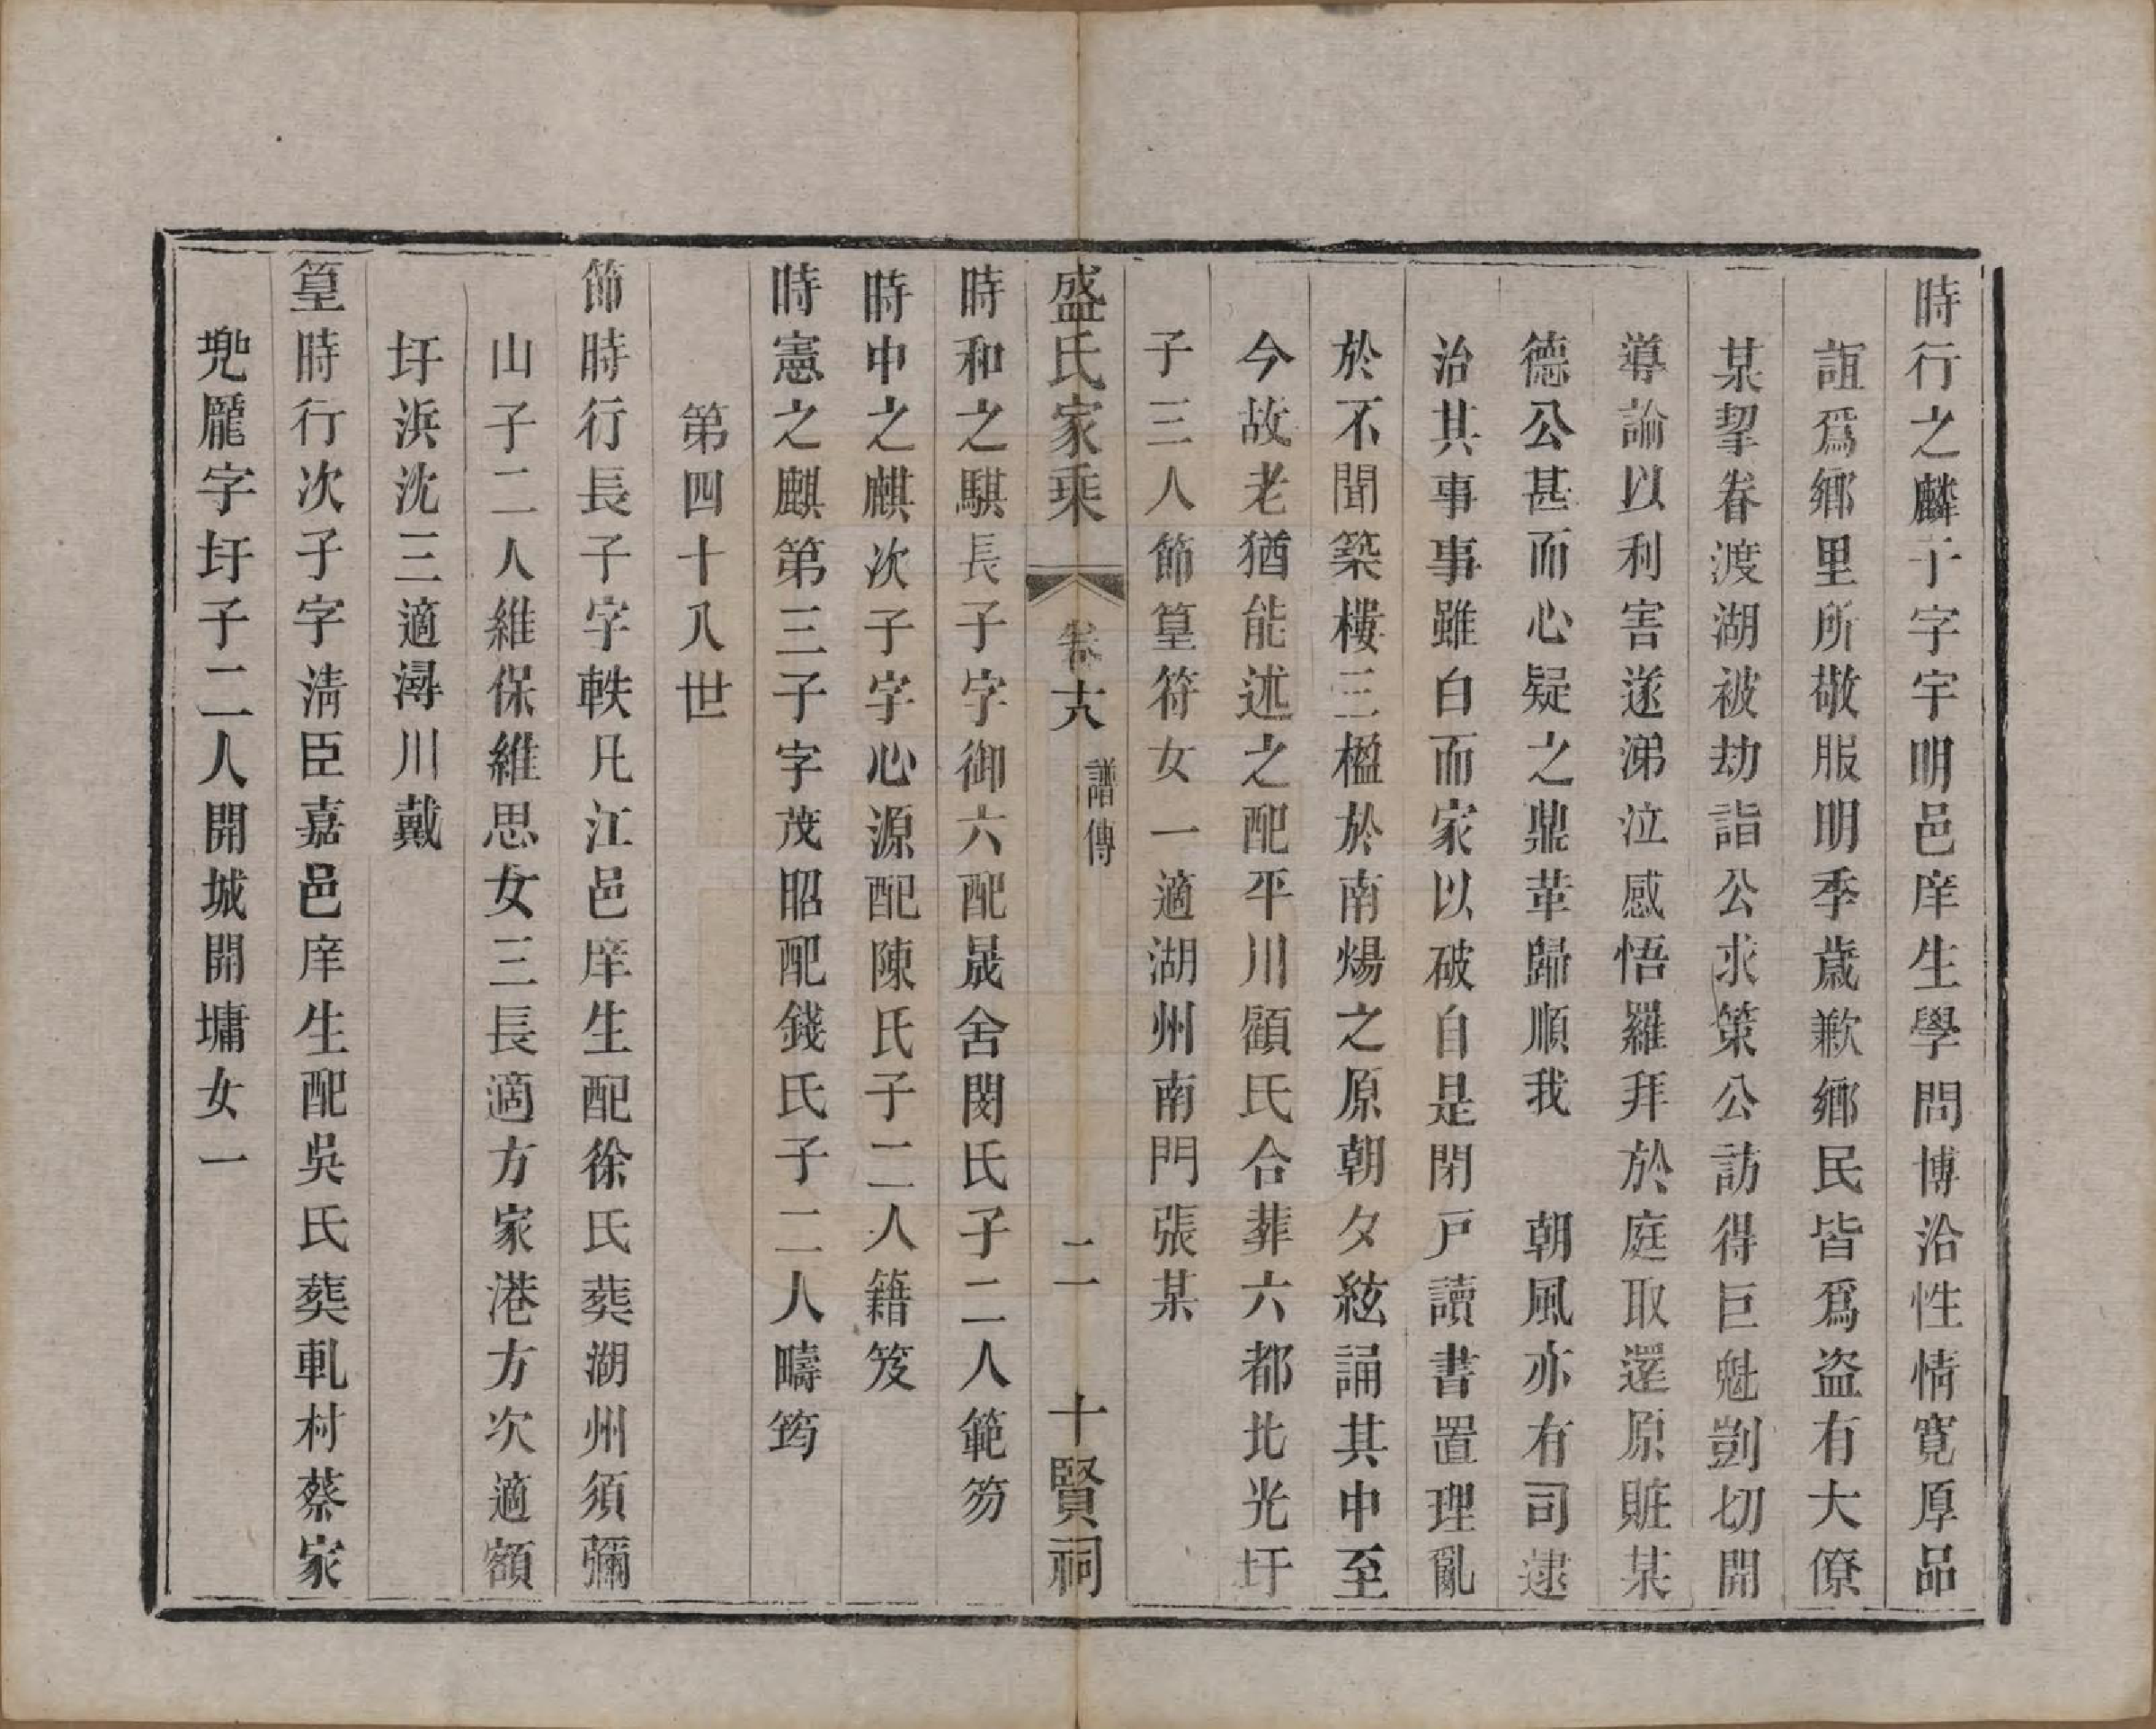 時行之麟子字宇明邑庠生學問博洽性情寬厚品
誼爲鄉里所敬服明季歲歉鄉民皆爲盜有大僚
某挈眷渡湖被劫詣公求策公訪得巨魁剴切開
導諭以利害遂涕泣感悟羅拜於庭取還原賍某
德公甚而心疑之鼎革歸順我　朝風亦有司逮
治其事事雖白而家以破自是閉戸讀書置理亂
於不聞築樓三楹於南煬之原朝夕絃誦其中至
今故老猶能述之配平川顧氏合葬六都北光圩
子三人節篁符女一適湖州南門張某
盛氏家乘　卷十六　譜傳　二　十賢祠
時和之騏長子字御六配晟舍閔氏子二人範笏
時中之麒次子字心源配陳氏子二人籍笈
時憲之麒第三子字茂昭配錢氏子二人疇筠
第四十八世
節時行長子字軼凡江邑庠生配徐氏葬湖州須彌
山子二人維保維思女三長適方家港方次適額
圩浜沈三適潯川戴
篁時行次子字淸臣嘉邑庠生配吳氏葬軋村蔡家
兠龎字圩子二人開城開墉女一